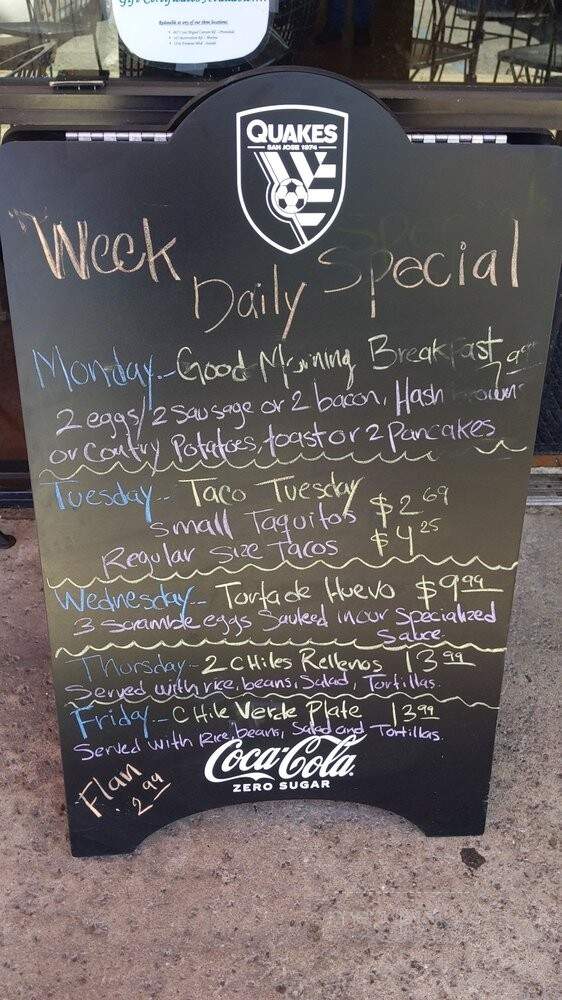 Gift Certificates Available!!!
Redeemable at any of our three locations:
QUAKES
SAN JOSE 1974
Week
Daily Special
Monday-- Good Morning Breakfast
2 eggs/2 Sausage or 2 bacon, Hash
or Contry Potatoes, toast or 2 Pancakes
Tuesday-- Taco Tuesday
small Taquitos $2 69
Regular Size Tacos $4 25
Wednesday-- Torta de Huevo $9 99
3 Scramble eggs Sauteed in our Specialized
Sauce.
Thursday-- 2 CHiles Rellenos 13 99
Served with rice, beans, Salad, Tortillas.
Friday-- CHile Verde Plate 13 99
Served with Rice, beans, Salad and Tortillas.
Coca-Cola
ZERO SUGAR
Flan
2 99